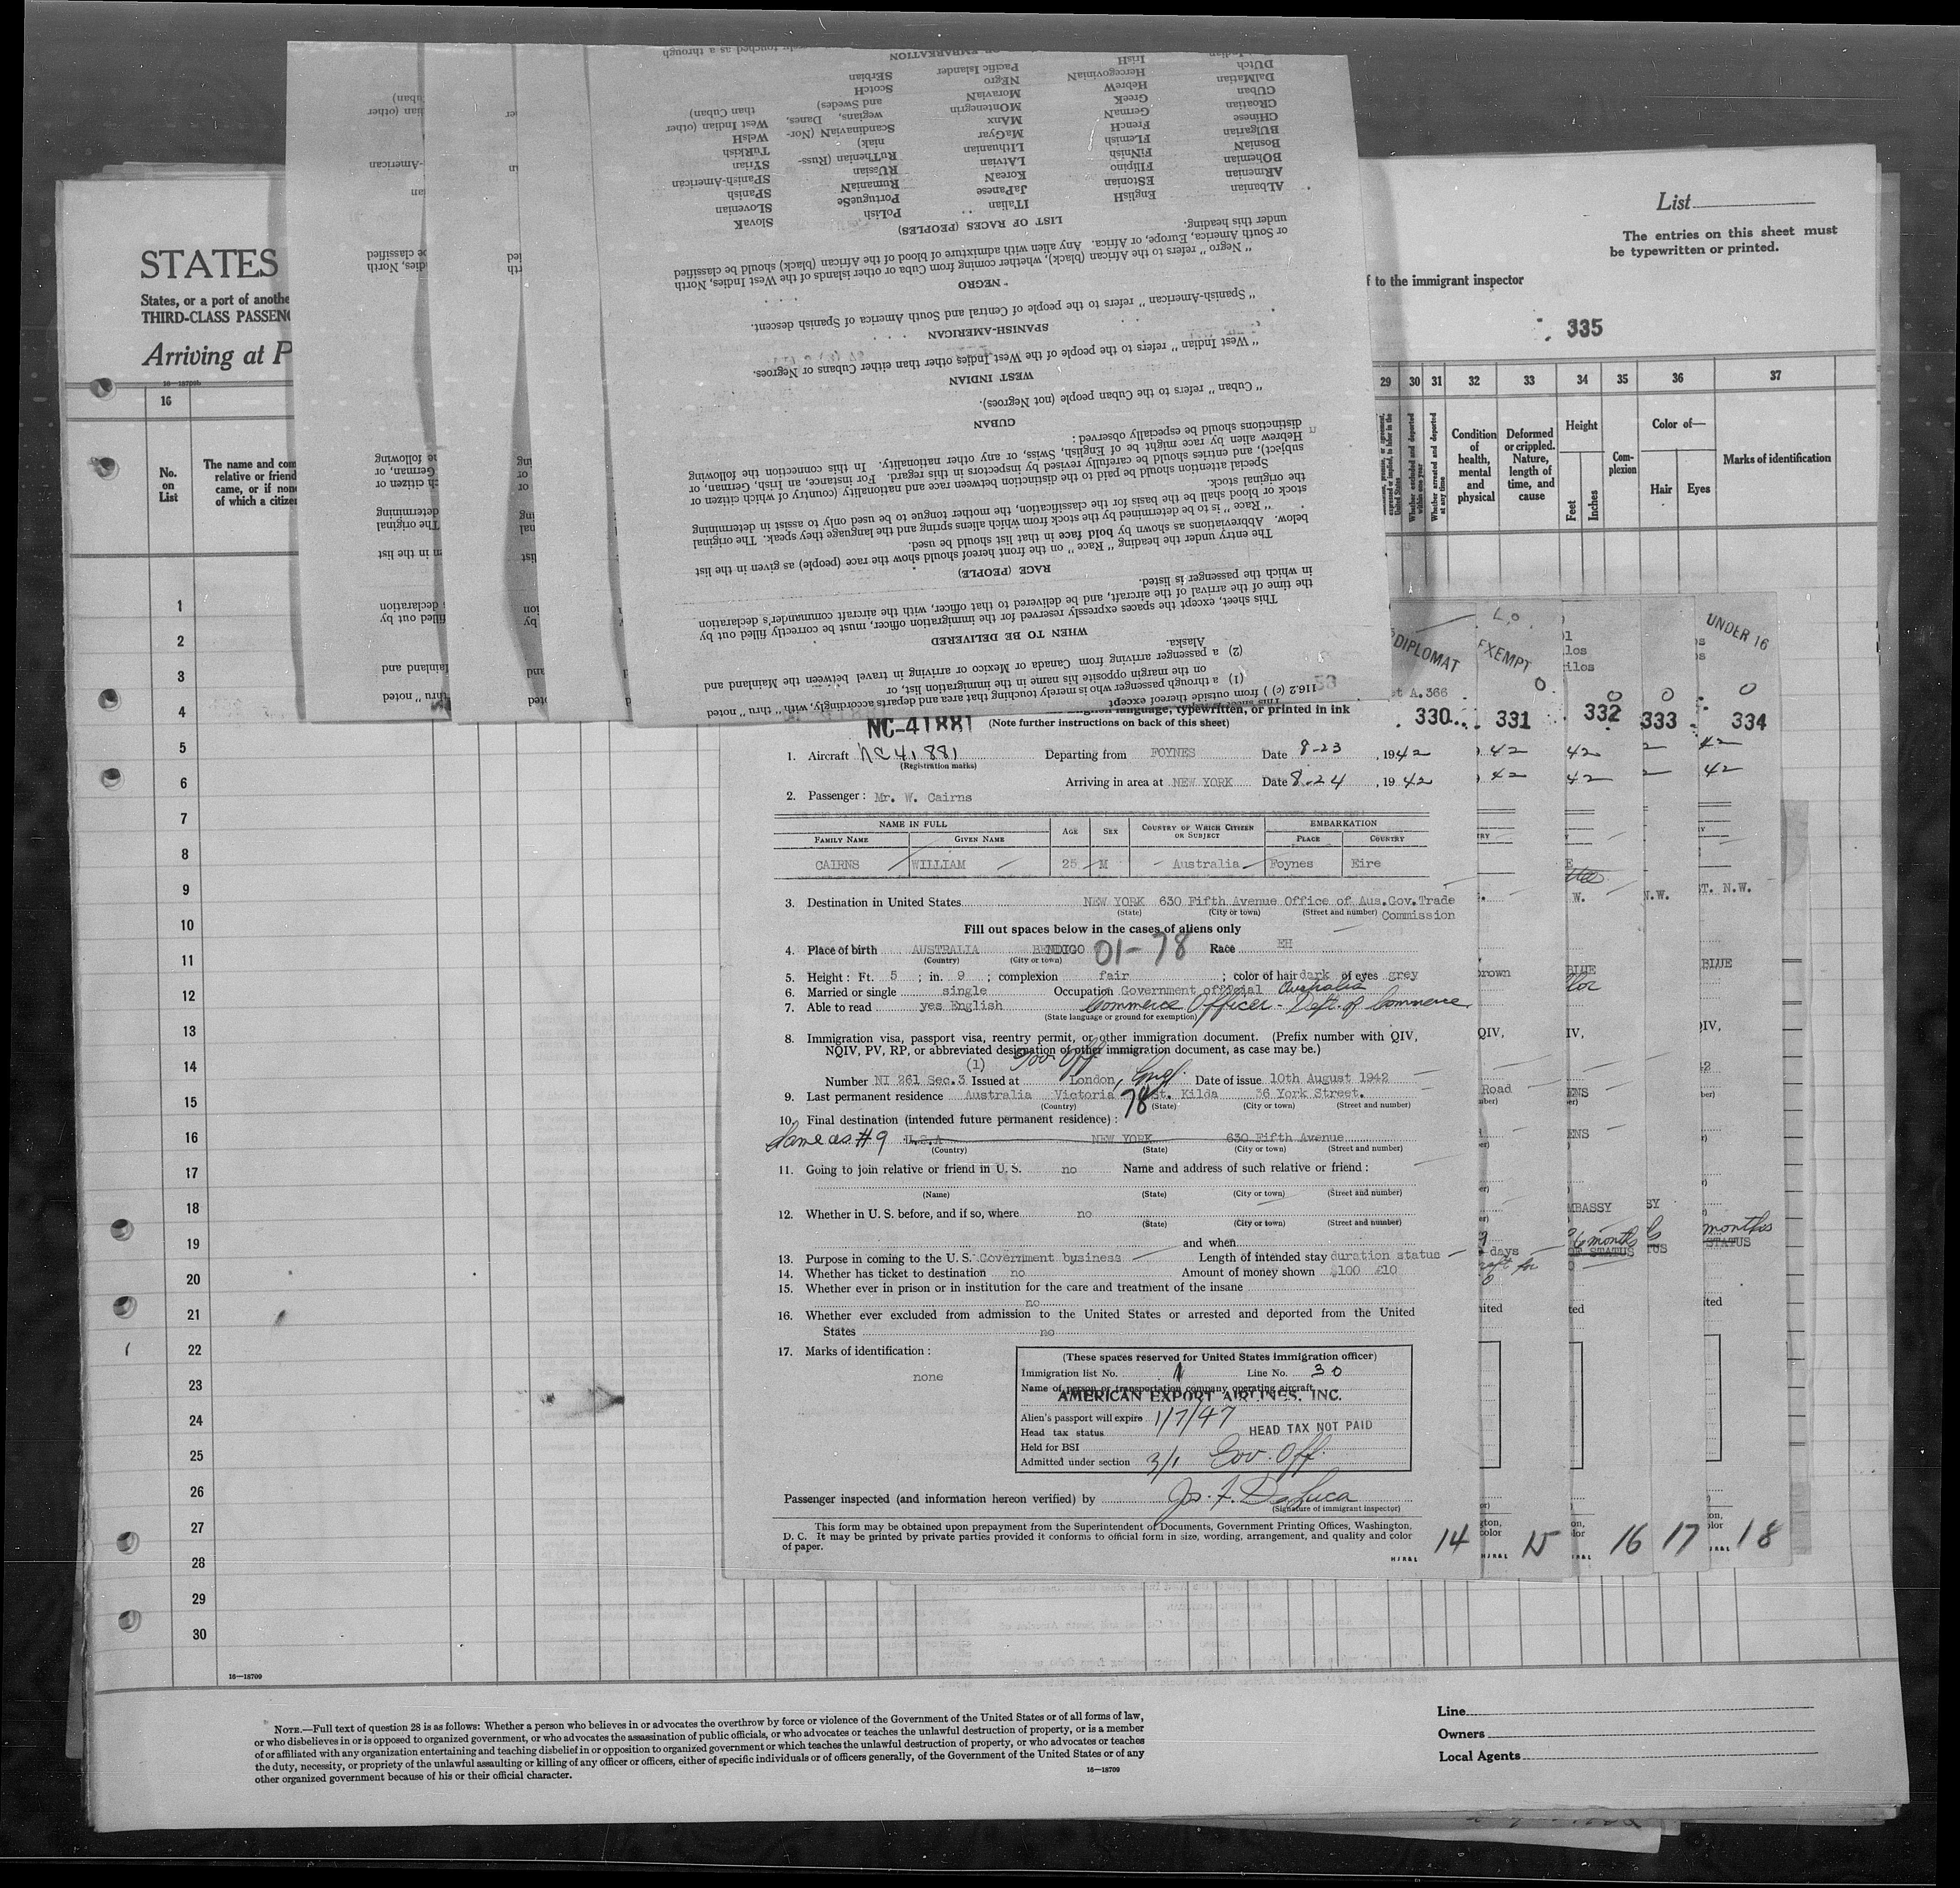 STATES
States, or a port of anothe
THIRD-CLASS PASSENG
Arriving at P
16—18709b
16
No.
on
List
The name and com
relative or friend
came, or if none
of which a citizen
1
2
3
4
5
6
7
8
9
10
11
12
13
14
15
16
17
18
19
20
21
22
23
24
25
26
27
28
29
30
16—18709
List
The entries on this sheet must
be typewritten or printed.
f to the immigrant inspector
335
29 30 31 32 33 34 35 36 37
Whether excluded and deported within one year
Whether arrested and deported at any time
Condition of health, mental and physical
Deformed or crippled. Nature, length of time, and cause
Height
Feet
Inches
Com-plexion
Color of—
Hair
Eyes
Marks of identification
116.2 (c) ) from outside thereof except
(1) a through passenger who is merely touching that area and departs accordingly, with "thru" noted
on the margin opposite his name in the immigration list, or
(2) a passenger arriving from Canada or Mexico or arriving in travel between the Mainland and
Alaska.
WHEN TO BE DELIVERED
This sheet, except the spaces expressly reserved for the immigration officer, must be correctly filled out by
the time of the arrival of the aircraft, and be delivered to that officer, with the aircraft commander's declaration
in which the passenger is listed.
RACE (PEOPLE)
The entry under the heading "Race" on the front hereof should show the race (people) as given in the list
below. Abbreviations as shown by bold face in that list should be used.
"Race" is to be determined by the stock from which aliens spring and the language they speak. The original
stock or blood shall be the basis for the classification, the mother tongue to be used only to assist in determining
the original stock.
Special attention should be paid to the distinction between race and nationality (country of which citizen or
subject), and entries should be carefully revised by inspectors in this regard. For instance, an Irish, German, or
Hebrew alien by race might be of English, Swiss, or any other nationality. In this connection the following
distinctions should be especially observed:
CUBAN
"Cuban" refers to the Cuban people (not Negroes).
WEST INDIAN
"West Indian" refers to the people of the West Indies other than either Cubans or Negroes.
SPANISH-AMERICAN
"Spanish-American" refers to the people of Central and South America of Spanish descent.
NEGRO
"Negro" refers to the African (black), whether coming from Cuba or other islands of the West Indies, North
or South America, Europe, or Africa. Any alien with admixture of blood of the African (black) should be classified
under this heading.
LIST OF RACES (PEOPLES)
ALbanian EnglisH ITalian PoLish SlovaK
ARmenian EStonian JaPanese PortugueSe SLovenian
BOhemian FIlipino KoreaN RumaniaN SPanish
BosniaN FiNnish LAtvian RUssian SPanish-American
BUlgarian FLemish LIthuanian RuThenian (Russ-niak) SYrian
CHinese FrencH MaGyar TuRkish
CRoatian GermaN MAnx Scandinavian (Nor-wegians, Danes, and Swedes) WelsH
CUban GreeK MOntenegrin West Indian (other than Cuban)
DalMatian HebreW MoraviaN ScotcH
DUtch HercegoviniaN NEgro SErbian
IrisH Pacific Islander
DIPLOMAT
EXEMPT
UNDER 16
330 331 332 333 334
language, typewritten, or printed in ink
NC-41881 (Note further instructions on back of this sheet)
1. Aircraft NC 41881 Departing from FOYNES Date 8-23, 1942
(Registration marks)
Arriving in area at NEW YORK Date 8-24, 1942
2. Passenger: Mr. W. Cairns
NAME IN FULL AGE SEX COUNTRY OF WHICH CITIZEN OR SUBJECT EMBARKATION
FAMILY NAME GIVEN NAME PLACE COUNTRY
CAIRNS WILLIAM 25 M Australia Foynes Eire
3. Destination in United States NEW YORK 630 Fifth Avenue Office of Aus.Gov.Trade
(State) (City or town) (Street and number) Commission
Fill out spaces below in the cases of aliens only
4. Place of birth AUSTRALIA BENDIGO 01-78 Race EH
(Country) (City or town)
5. Height: Ft. 5; in. 9; complexion fair; color of hair dark of eyes grey
6. Married or single single Occupation Government official Australia
7. Able to read yes English Commerce Officer - Dept. of Commerce
(State language or ground for exemption)
8. Immigration visa, passport visa, reentry permit, or other immigration document. (Prefix number with QIV,
NQIV, PV, RP, or abbreviated designation of other immigration document, as case may be.)
(1) Gov Off
Number NI 261 Sec.3 Issued at London, Eng. Date of issue 10th August 1942
9. Last permanent residence Australia Victoria 78 St. Kilda 36 York Street.
(Country) (State) (City or town) (Street and number)
10. Final destination (intended future permanent residence):
Same as #9 U.S.A NEW YORK 630 Fifth Avenue
(Country) (State) (City or town) (Street and number)
11. Going to join relative or friend in U. S. no Name and address of such relative or friend:
(Name) (State) (City or town) (Street and number)
12. Whether in U. S. before, and if so, where no
(State) (City or town) (Street and number)
and when
13. Purpose in coming to the U. S. Government business Length of intended stay duration status
14. Whether has ticket to destination no Amount of money shown $100 £10
15. Whether ever in prison or in institution for the care and treatment of the insane
no
16. Whether ever excluded from admission to the United States or arrested and deported from the United
States no
17. Marks of identification:
none
(These spaces reserved for United States immigration officer)
Immigration list No. 1 Line No. 30
Name of person or transportation company operating aircraft
AMERICAN EXPORT AIRLINES, INC.
Alien's passport will expire 1/7/47
Head tax status HEAD TAX NOT PAID
Held for BSI
Admitted under section 3/1 Gov. Off.
Passenger inspected (and information hereon verified) by Js. F. DeLuca
(Signature of immigrant inspector)
This form may be obtained upon prepayment from the Superintendent of Documents, Government Printing Offices, Washington,
D. C. It may be printed by private parties provided it conforms to official form in size, wording, arrangement, and quality and color
of paper.
14 15 16 17 18
NOTE.—Full text of question 28 is as follows: Whether a person who believes in or advocates the overthrow by force or violence of the Government of the United States or of all forms of law,
or who disbelieves in or is opposed to organized government, or who advocates the assassination of public officials, or who advocates or teaches the unlawful destruction of property, or is a member
of or affiliated with any organization entertaining and teaching disbelief in or opposition to organized government or which teaches the unlawful destruction of property, or who advocates or teaches
the duty, necessity, or propriety of the unlawful assaulting or killing of any officer or officers, either of specific individuals or of officers generally, of the Government of the United States or of any
other organized government because of his or their official character.
16—18709
Line
Owners
Local Agents